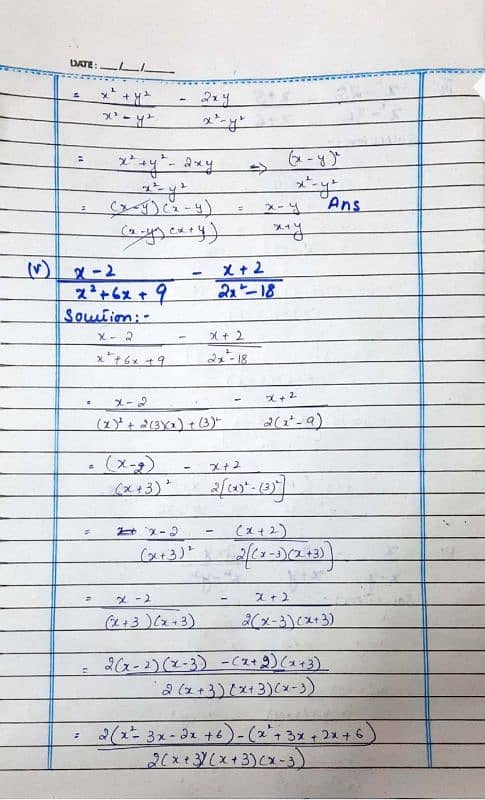 DATE: __/__/__
= x² + y² / x² - y² - 2xy / x² - y²
= x² + y² - 2xy / x² - y² => (x - y)² / x² - y²
= (x - y)(x - y) / (x - y)(x + y) = x - y / x + y Ans
(v) x - 2 / x² + 6x + 9 - x + 2 / 2x² - 18
Solution:-
x - 2 / x² + 6x + 9 - x + 2 / 2x² - 18
= x - 2 / (x)² + 2(3)(x) + (3)² - x + 2 / 2(x² - 9)
= (x - 2) / (x + 3)² - x + 2 / 2[(x)² - (3)²]
= x - 2 / (x + 3)² - (x + 2) / 2[(x - 3)(x + 3)]
= x - 2 / (x + 3)(x + 3) - x + 2 / 2(x - 3)(x + 3)
= 2(x - 2)(x - 3) - (x + 2)(x + 3) / 2(x + 3)(x + 3)(x - 3)
= 2(x² - 3x - 2x + 6) - (x² + 3x + 2x + 6) / 2(x + 3)(x + 3)(x - 3)